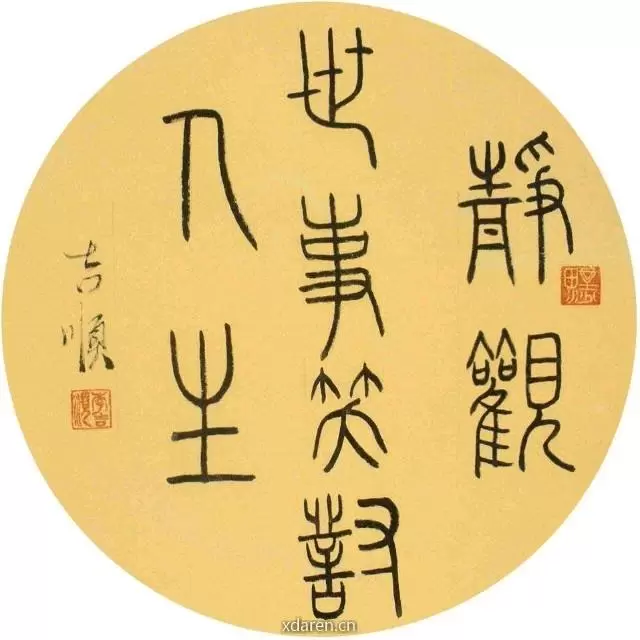 靜觀
世事笑對
人生
吉順
xdaren.cn